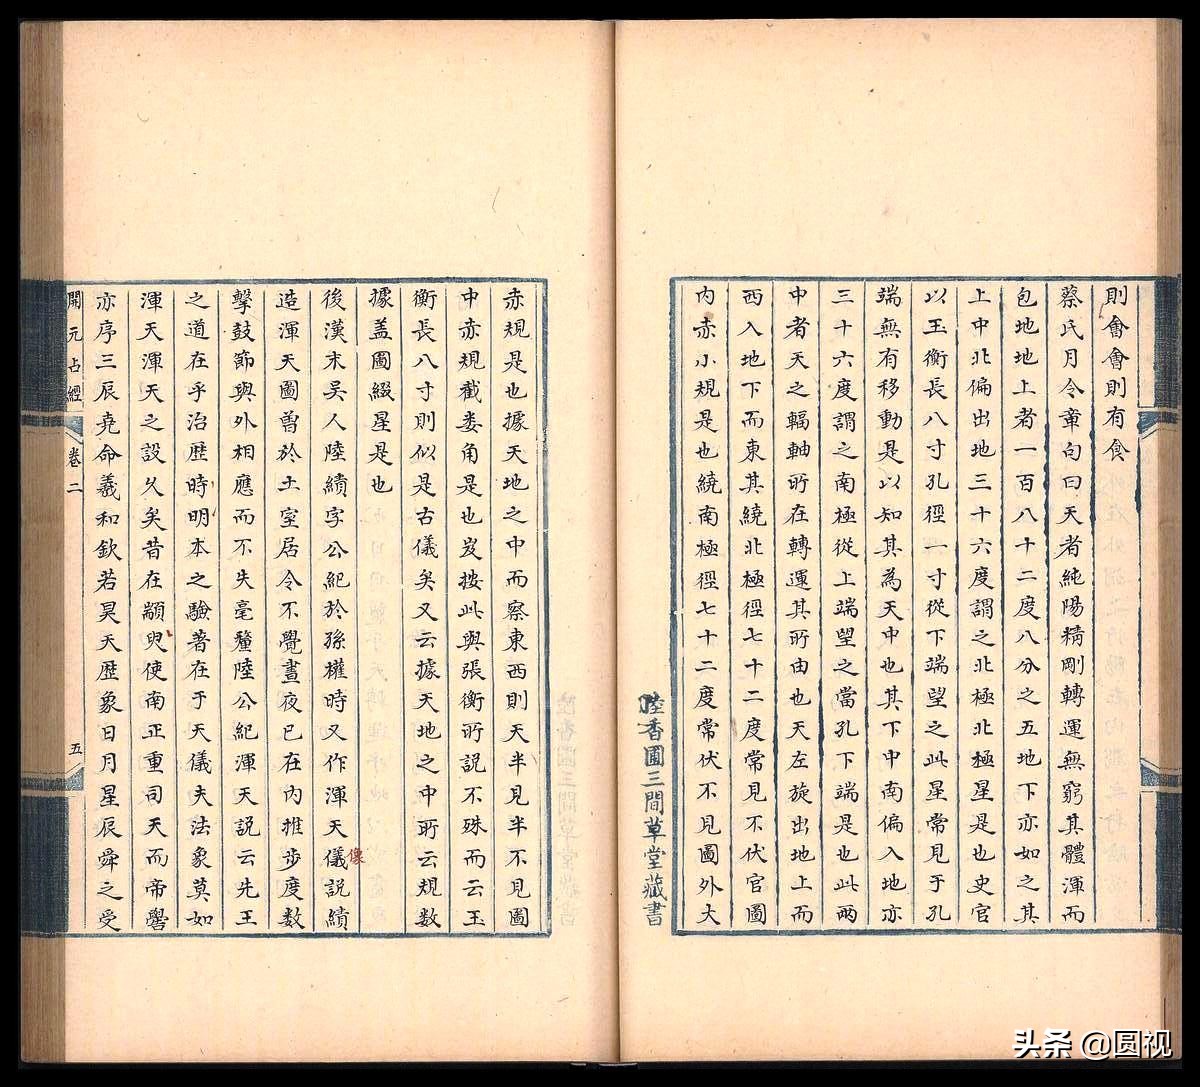 則會會則有食
蔡氏月令章句曰天者純陽精剛轉運無窮其體渾而
包地地上者一百八十二度八分之五地下亦如之其
上中北偏出地三十六度謂之北極北極星是也史官
以玉衡長八寸孔徑一寸從下端望之此星常見于孔
端無有移動是以知其為天中也其下中南偏入地亦
三十六度謂之南極從上端望之當孔下端是也此兩
中者天之輻軸所在轉運其所由也天左旋出地上而
西入地下而東其繞北極徑七十二度常見不伏官圖
内赤小規是也繞南極徑七十二度常伏不見圖外大
陸香圃三間草堂藏書
赤規是也據天地之中而察東西則天半見半不見圖
中赤規截婁角是也岌按此與張衡所說不殊而云玉
衡長八寸則似是古儀矣又云據天地之中所云規数
據盖圖綴星是也
後漢末吴人陸績字公紀於孫權時又作渾天儀說績
像
造渾天圖曽於土室居令不覺晝夜已在内推步度数
擊鼓節與外相應而不失毫釐陸公紀渾天說云先王
之道在乎治歴時明本之驗著在于天儀夫法象莫如
渾天渾天之設久矣昔在顓臾使南正重司天而帝嚳
亦序三辰尭命羲和欽若昊天歴象日月星辰舜之受
開元占經
卷二
五
头条 @圆视